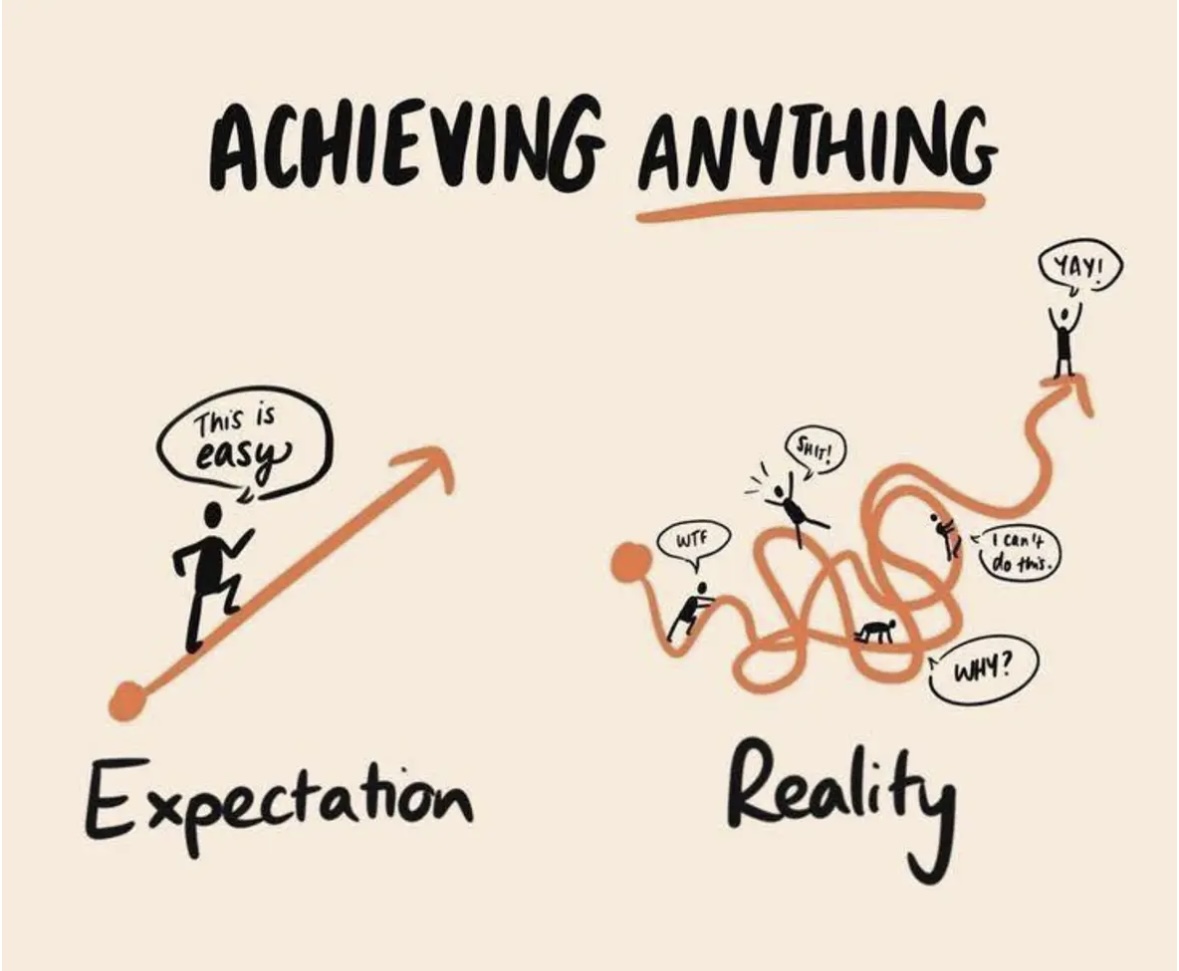 ACHIEVING ANYTHING
This is
easy
Expectation
WTF
SHIT!
I can't
do this.
WHY?
YAY!
Reality